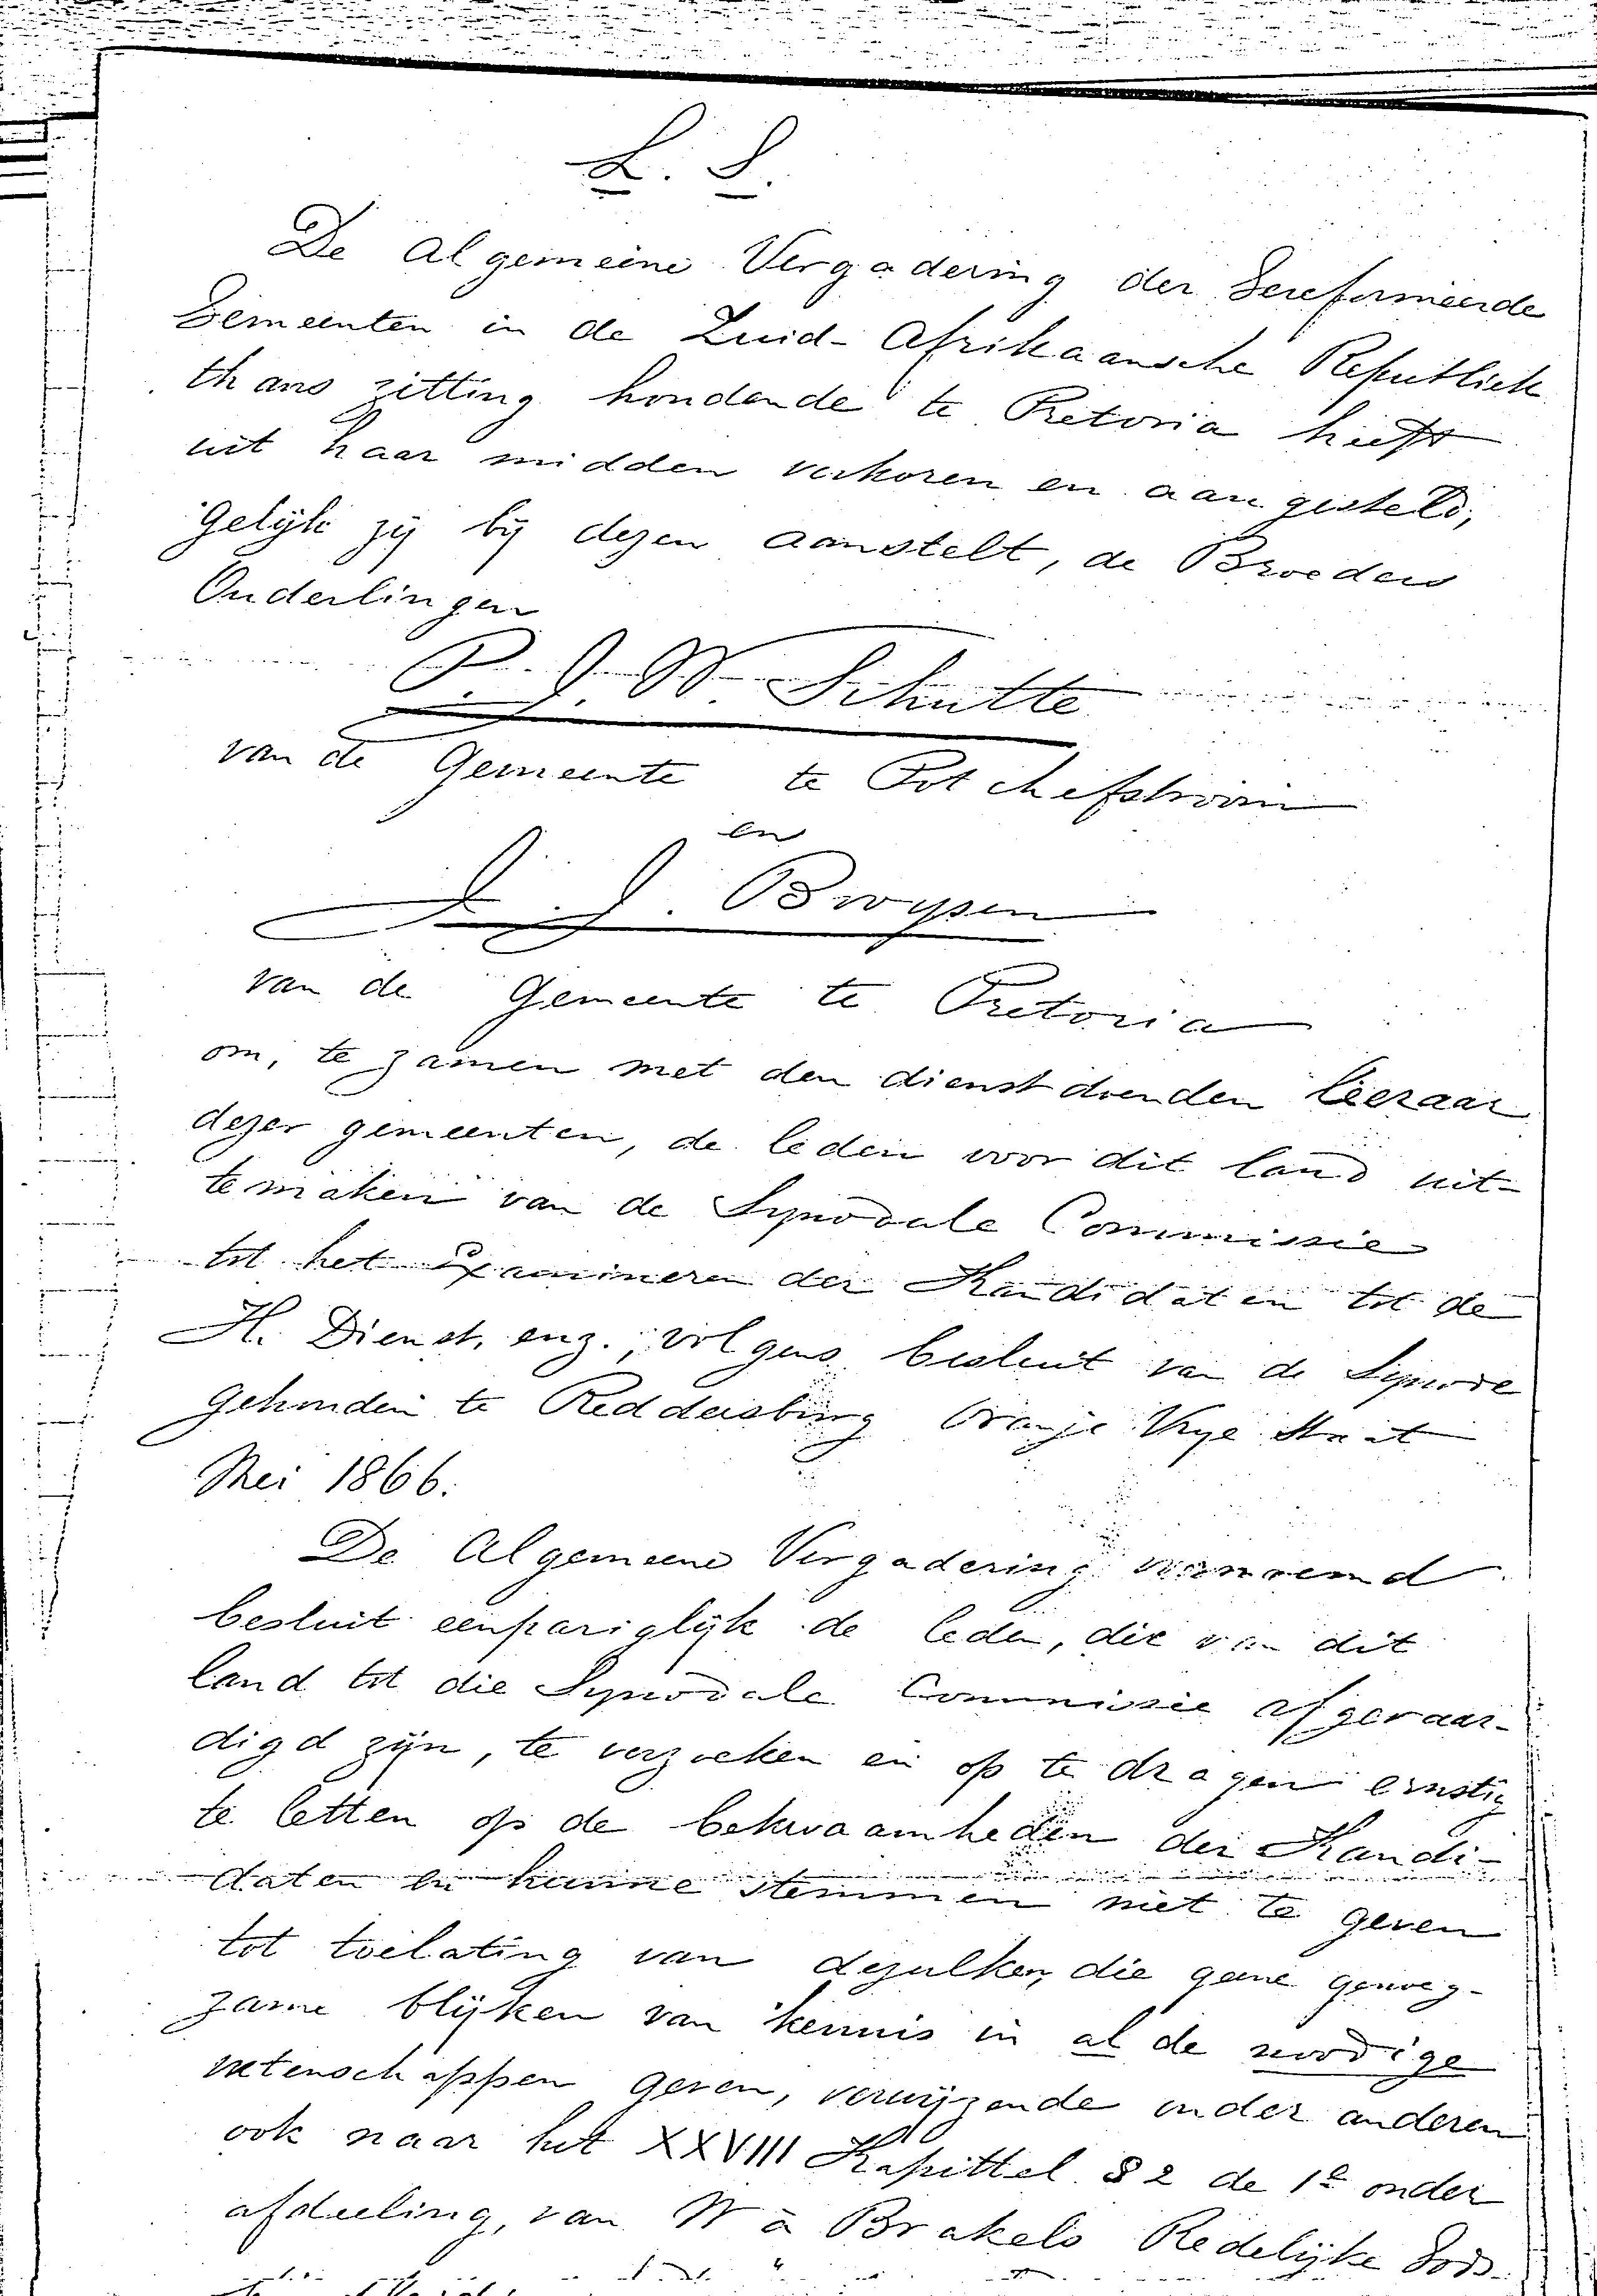 L. S.
De Algemeene Vergadering der Gereformeerde
Gemeenten in de Zuid-Afrikaansche Republiek
thans zitting houdende te Pretoria heeft
uit haar midden verkoren en aangesteld,
Gelijk zij bij dezen aanstelt, de Broeders
Ouderlingen
P. J. W. Schutte
van de Gemeente te Potchefstroom
en
J. J. Bruysen
van de Gemeente te Pretoria
om, te zamen met den dienstdoenden Leeraar
dezer gemeenten, de leden voor dit land uit-
temaken van de Synodale Commissie
tot het Examineren der Kandidaten tot de
H. Dienst, enz., volgens besluit van de Synode
Gehouden te Reddersburg Oranje Vrye Staat
Mei 1866.
De Algemeene Vergadering voornoemd
besluit eenpariglijk de leden, die van dit
land tot die Synodale Commissie afgevaar-
digd zijn, te verzoeken en op te dragen ernstig
te letten op de bekwaamheden der Kandi-
daten en hunne stemmen niet te geven
tot toelating van dezulken, die geene genoeg-
zame blijken van kennis in al de noodige
wetenschappen geven, verwijzende onder anderen
ook naar het XXVIII Kapittel § 2 de 1e onder
afdeeling, van W à Brakels Redelijke Gods-